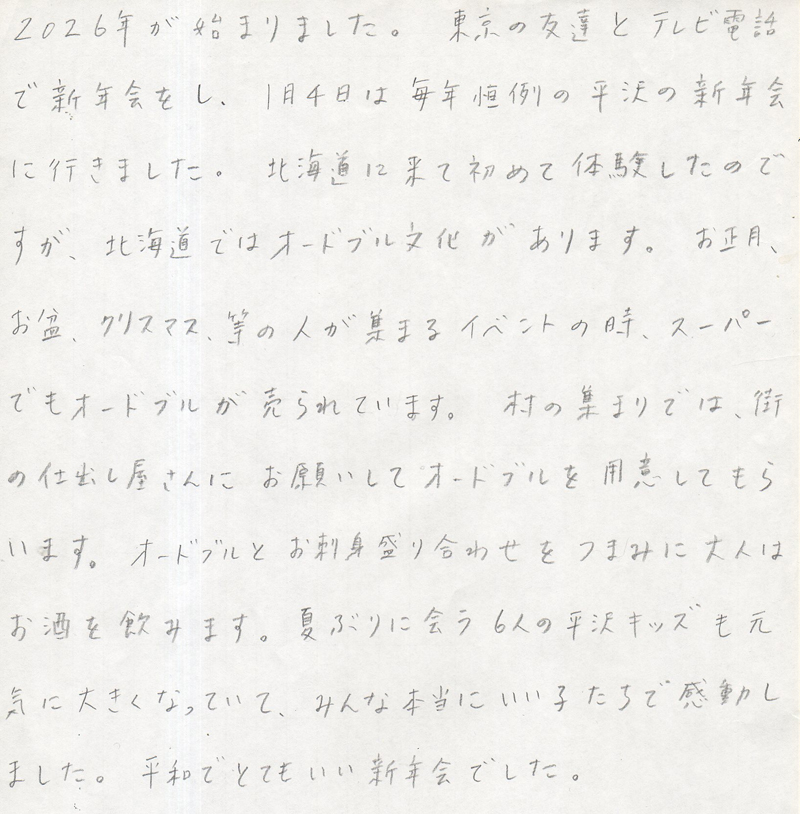 2026年が始まりました。 東京の友達とテレビ電話
で新年会をし、1月4日は毎年恒例の平沢の新年会
に行きました。 北海道に来て初めて体験したので
すが、北海道ではオードブル文化があります。 お正月、
お盆、クリスマス、等の人が集まるイベントの時、スーパー
でもオードブルが売られています。 村の集まりでは、街
の仕出し屋さんにお願いしてオードブルを用意してもら
います。 オードブルとお刺身盛り合わせをつまみに大人は
お酒を飲みます。夏ぶりに会う6人の平沢キッズも元
気に大きくなっていて、みんな本当にいい子たちで感動し
ました。 平和でとてもいい新年会でした。